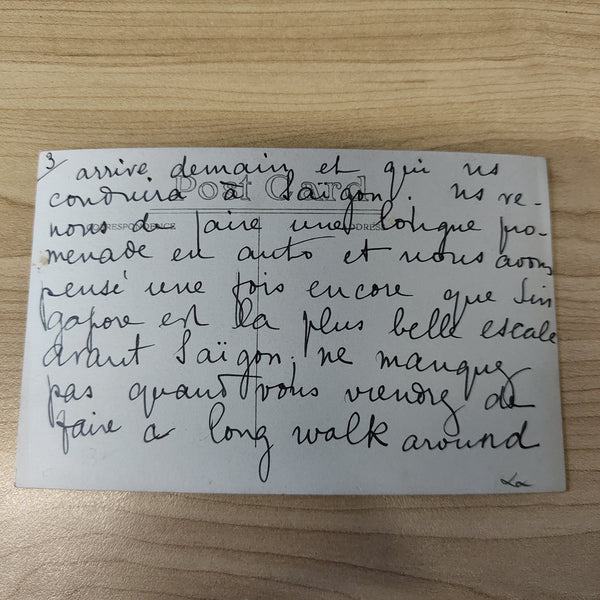 3/ arrive demain et qui ns
Post Card
conduira à Saïgon. Ns re-
CORRESPONDENCE ADDRESS
nons de faire une longue pro-
menade en auto et nous avons
pensé une fois encore que Sin
gapore est la plus belle escale
avant Saïgon, ne manquez
pas quand vous viendrez de
faire a long walk around